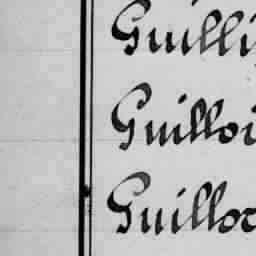 Guilli
Guilloi
Guillot